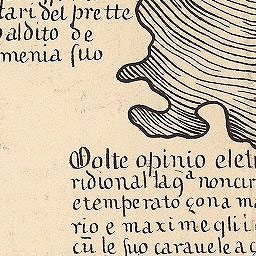 tari del prette
aldito de
menia suo
Molte opinioelet
ridional la q̄ᵃ noncir
etemperato çona ma
rio e maxime qli i
cū le suo carauele a